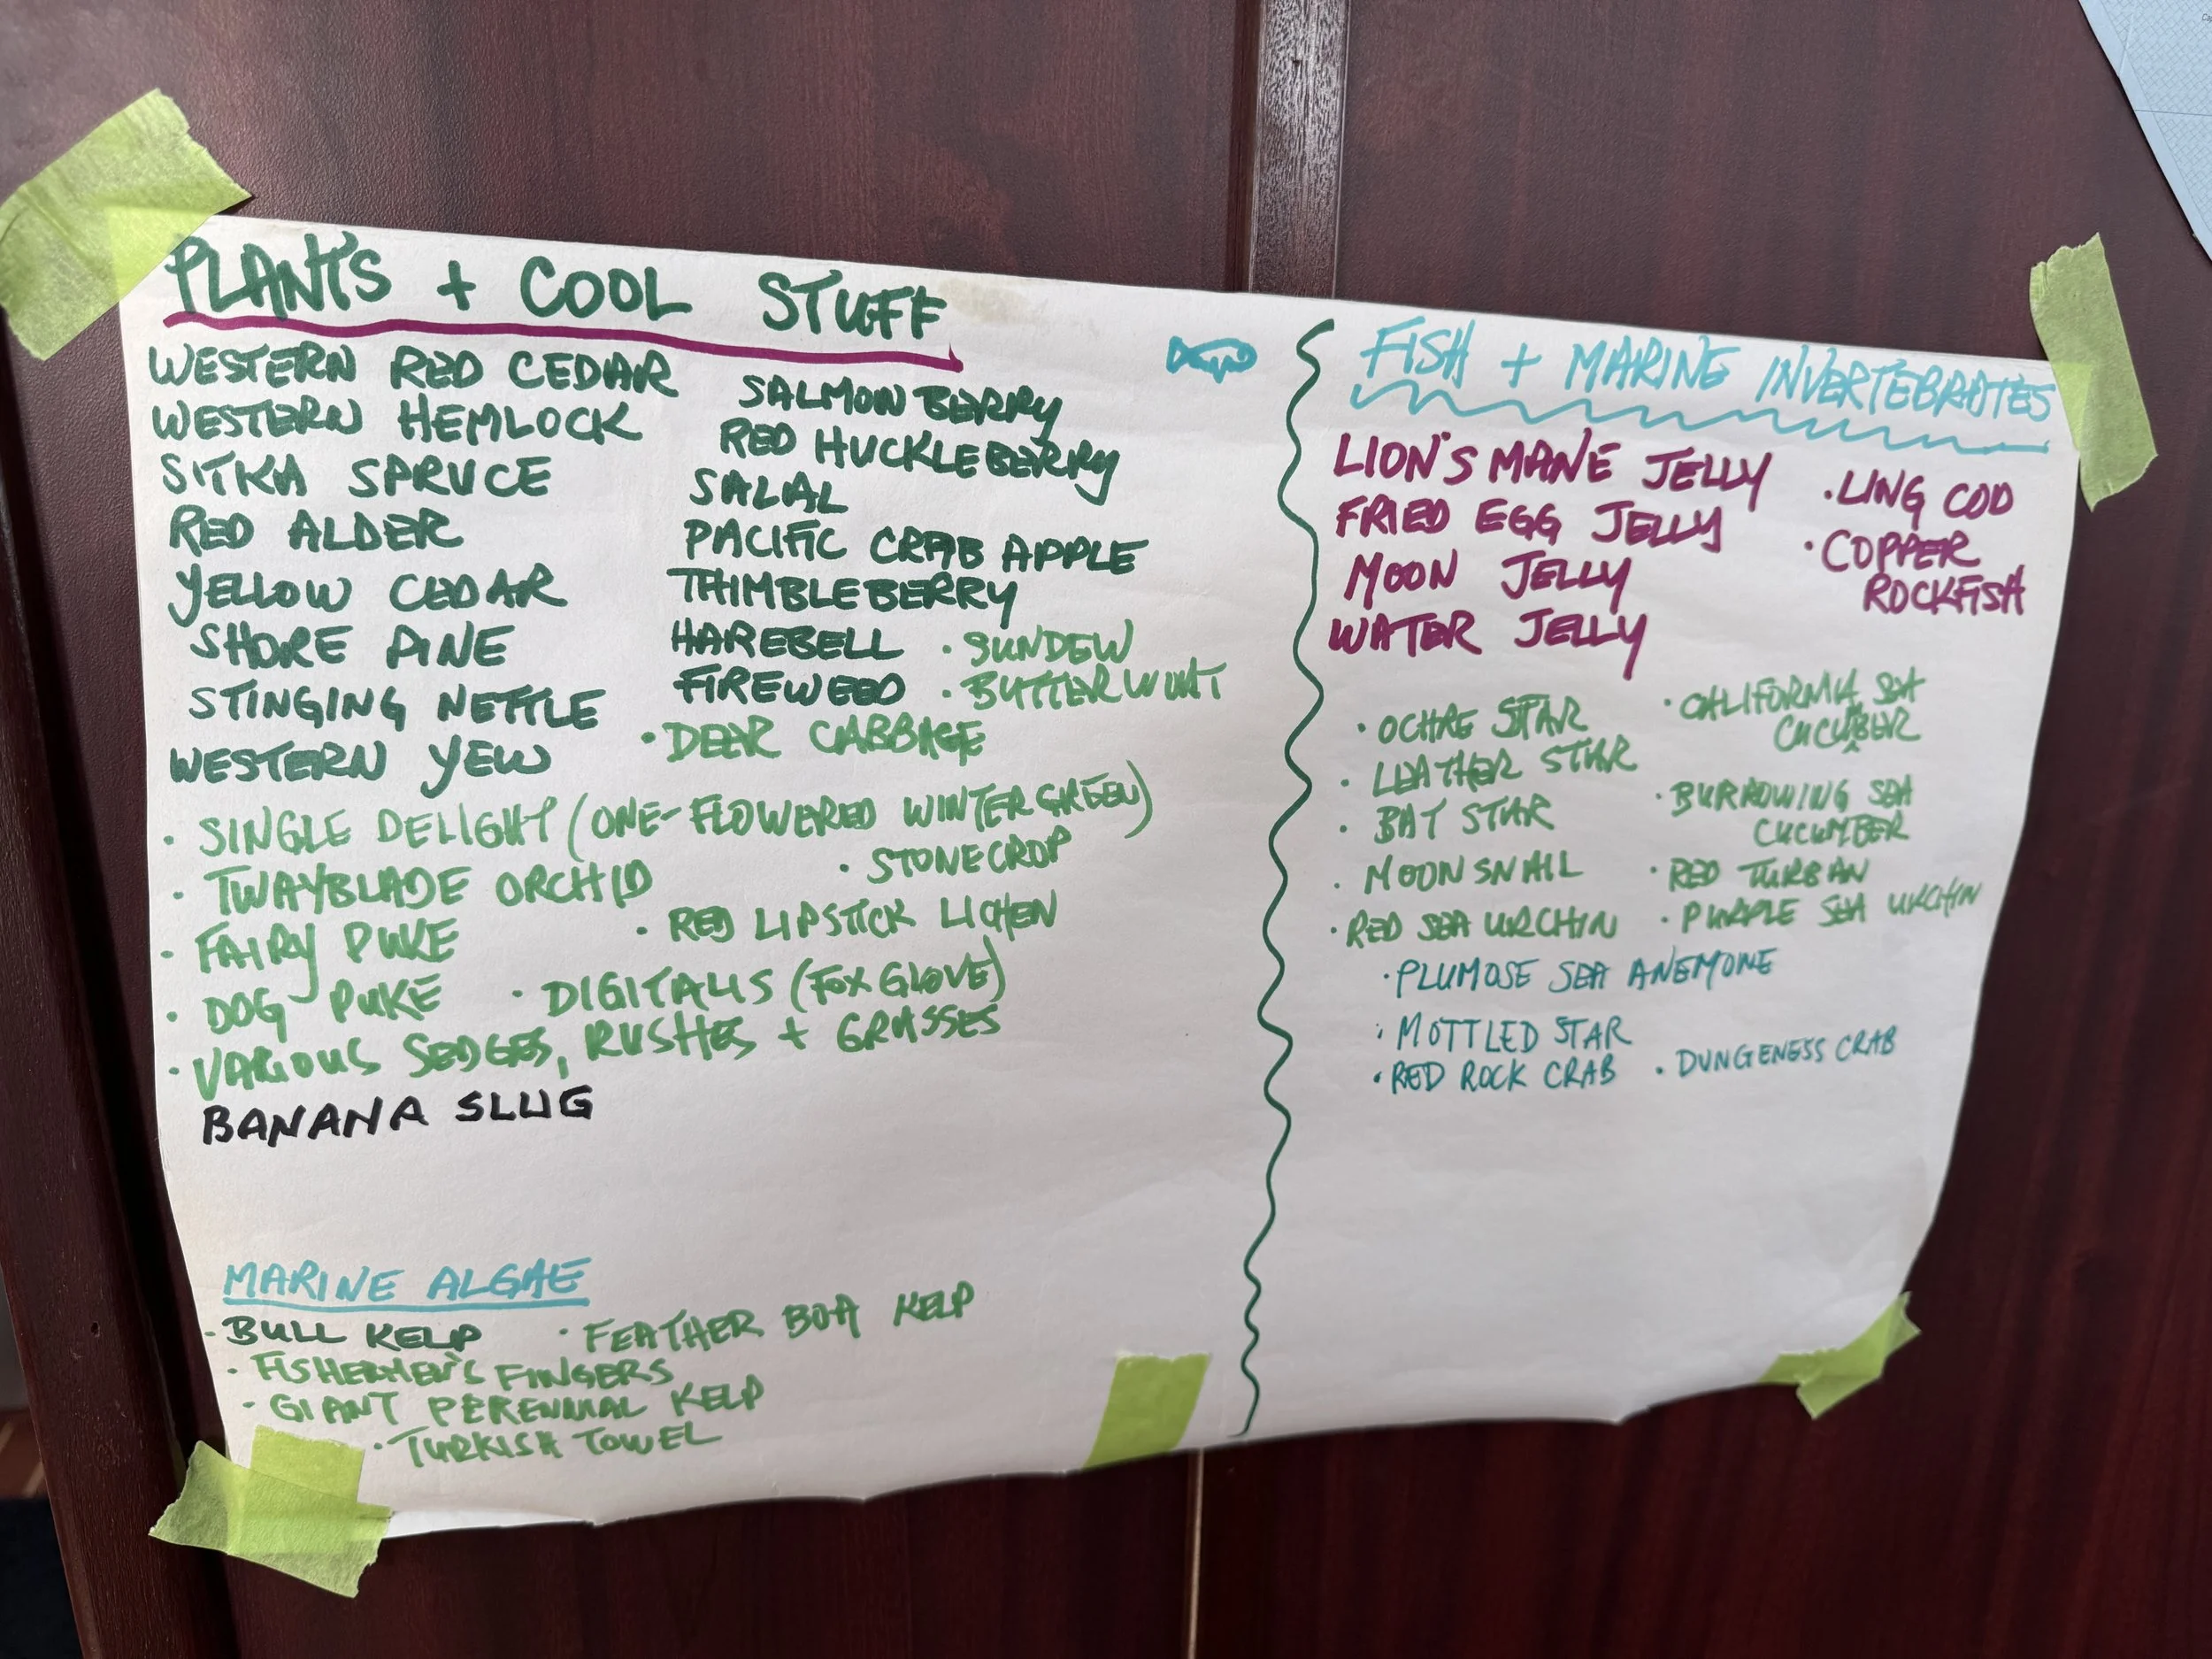 PLANTS + COOL STUFF
WESTERN RED CEDAR
WESTERN HEMLOCK
SITKA SPRUCE
RED ALDER
YELLOW CEDAR
SHORE PINE
STINGING NETTLE
WESTERN YEW
SALMONBERRY
RED HUCKLEBERRY
SALAL
PACIFIC CRAB APPLE
THIMBLEBERRY
HAREBELL
FIREWEED
· SUNDEW
· BUTTERWORT
· DEER CABBAGE
· SINGLE DELIGHT (ONE-FLOWERED WINTERGREEN)
· TWAYBLADE ORCHID
· STONECROP
· FAIRY PUKE
· RED LIPSTICK LICHEN
· DOG PUKE
· DIGITALIS (FOXGLOVE)
· VARIOUS SEDGES, RUSHES + GRASSES
BANANA SLUG
MARINE ALGAE
· BULL KELP
· FEATHER BOA KELP
· FISHERMEN'S FINGERS
· GIANT PERENNIAL KELP
· TURKISH TOWEL
FISH + MARINE INVERTEBRATES
LION'S MANE JELLY
FRIED EGG JELLY
MOON JELLY
WATER JELLY
· LING COD
· COPPER
ROCKFISH
· OCHRE STAR
· LEATHER STAR
· BAT STAR
· MOONSNAIL
· RED SEA URCHIN
· CALIFORNIA SEA
CUCUMBER
· BURROWING SEA
CUCUMBER
· RED TURBAN
· PURPLE SEA URCHIN
· PLUMOSE SEA ANEMONE
· MOTTLED STAR
· RED ROCK CRAB
· DUNGENESS CRAB